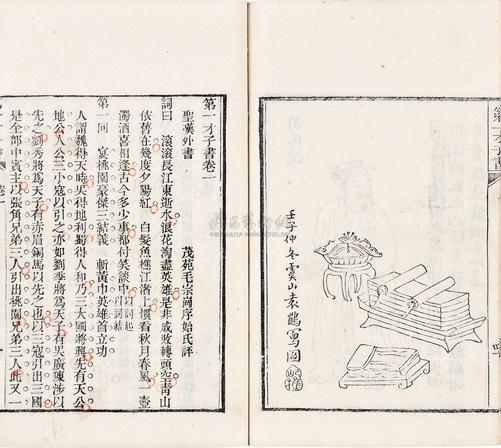 第一才子書
壬子仲冬雲山袁鶴寫圖
第一才子書卷一
聖嘆外書 茂苑毛宗崗序始氏評
詞曰 滾滾長江東逝水浪花淘盡英雄是非成敗轉頭空靑山
依舊在幾度夕陽紅 白髮魚樵江渚上慣看秋月春風一壺
濁酒喜相逢古今多少事都付笑談中以詞起以詞結
第一回 宴桃園豪傑三結義 斬黃巾英雄首立功
人謂魏得天時吳得地利蜀得人和乃三大國將興先有天公
地公人公三小寇以引之亦如劉季將爲天子有吳廣陳涉以
先之劉秀將爲天子有赤眉銅馬以先之也以三寇引出三國
是全部中賓主以張角兄弟三人引出桃園兄弟三人此又一